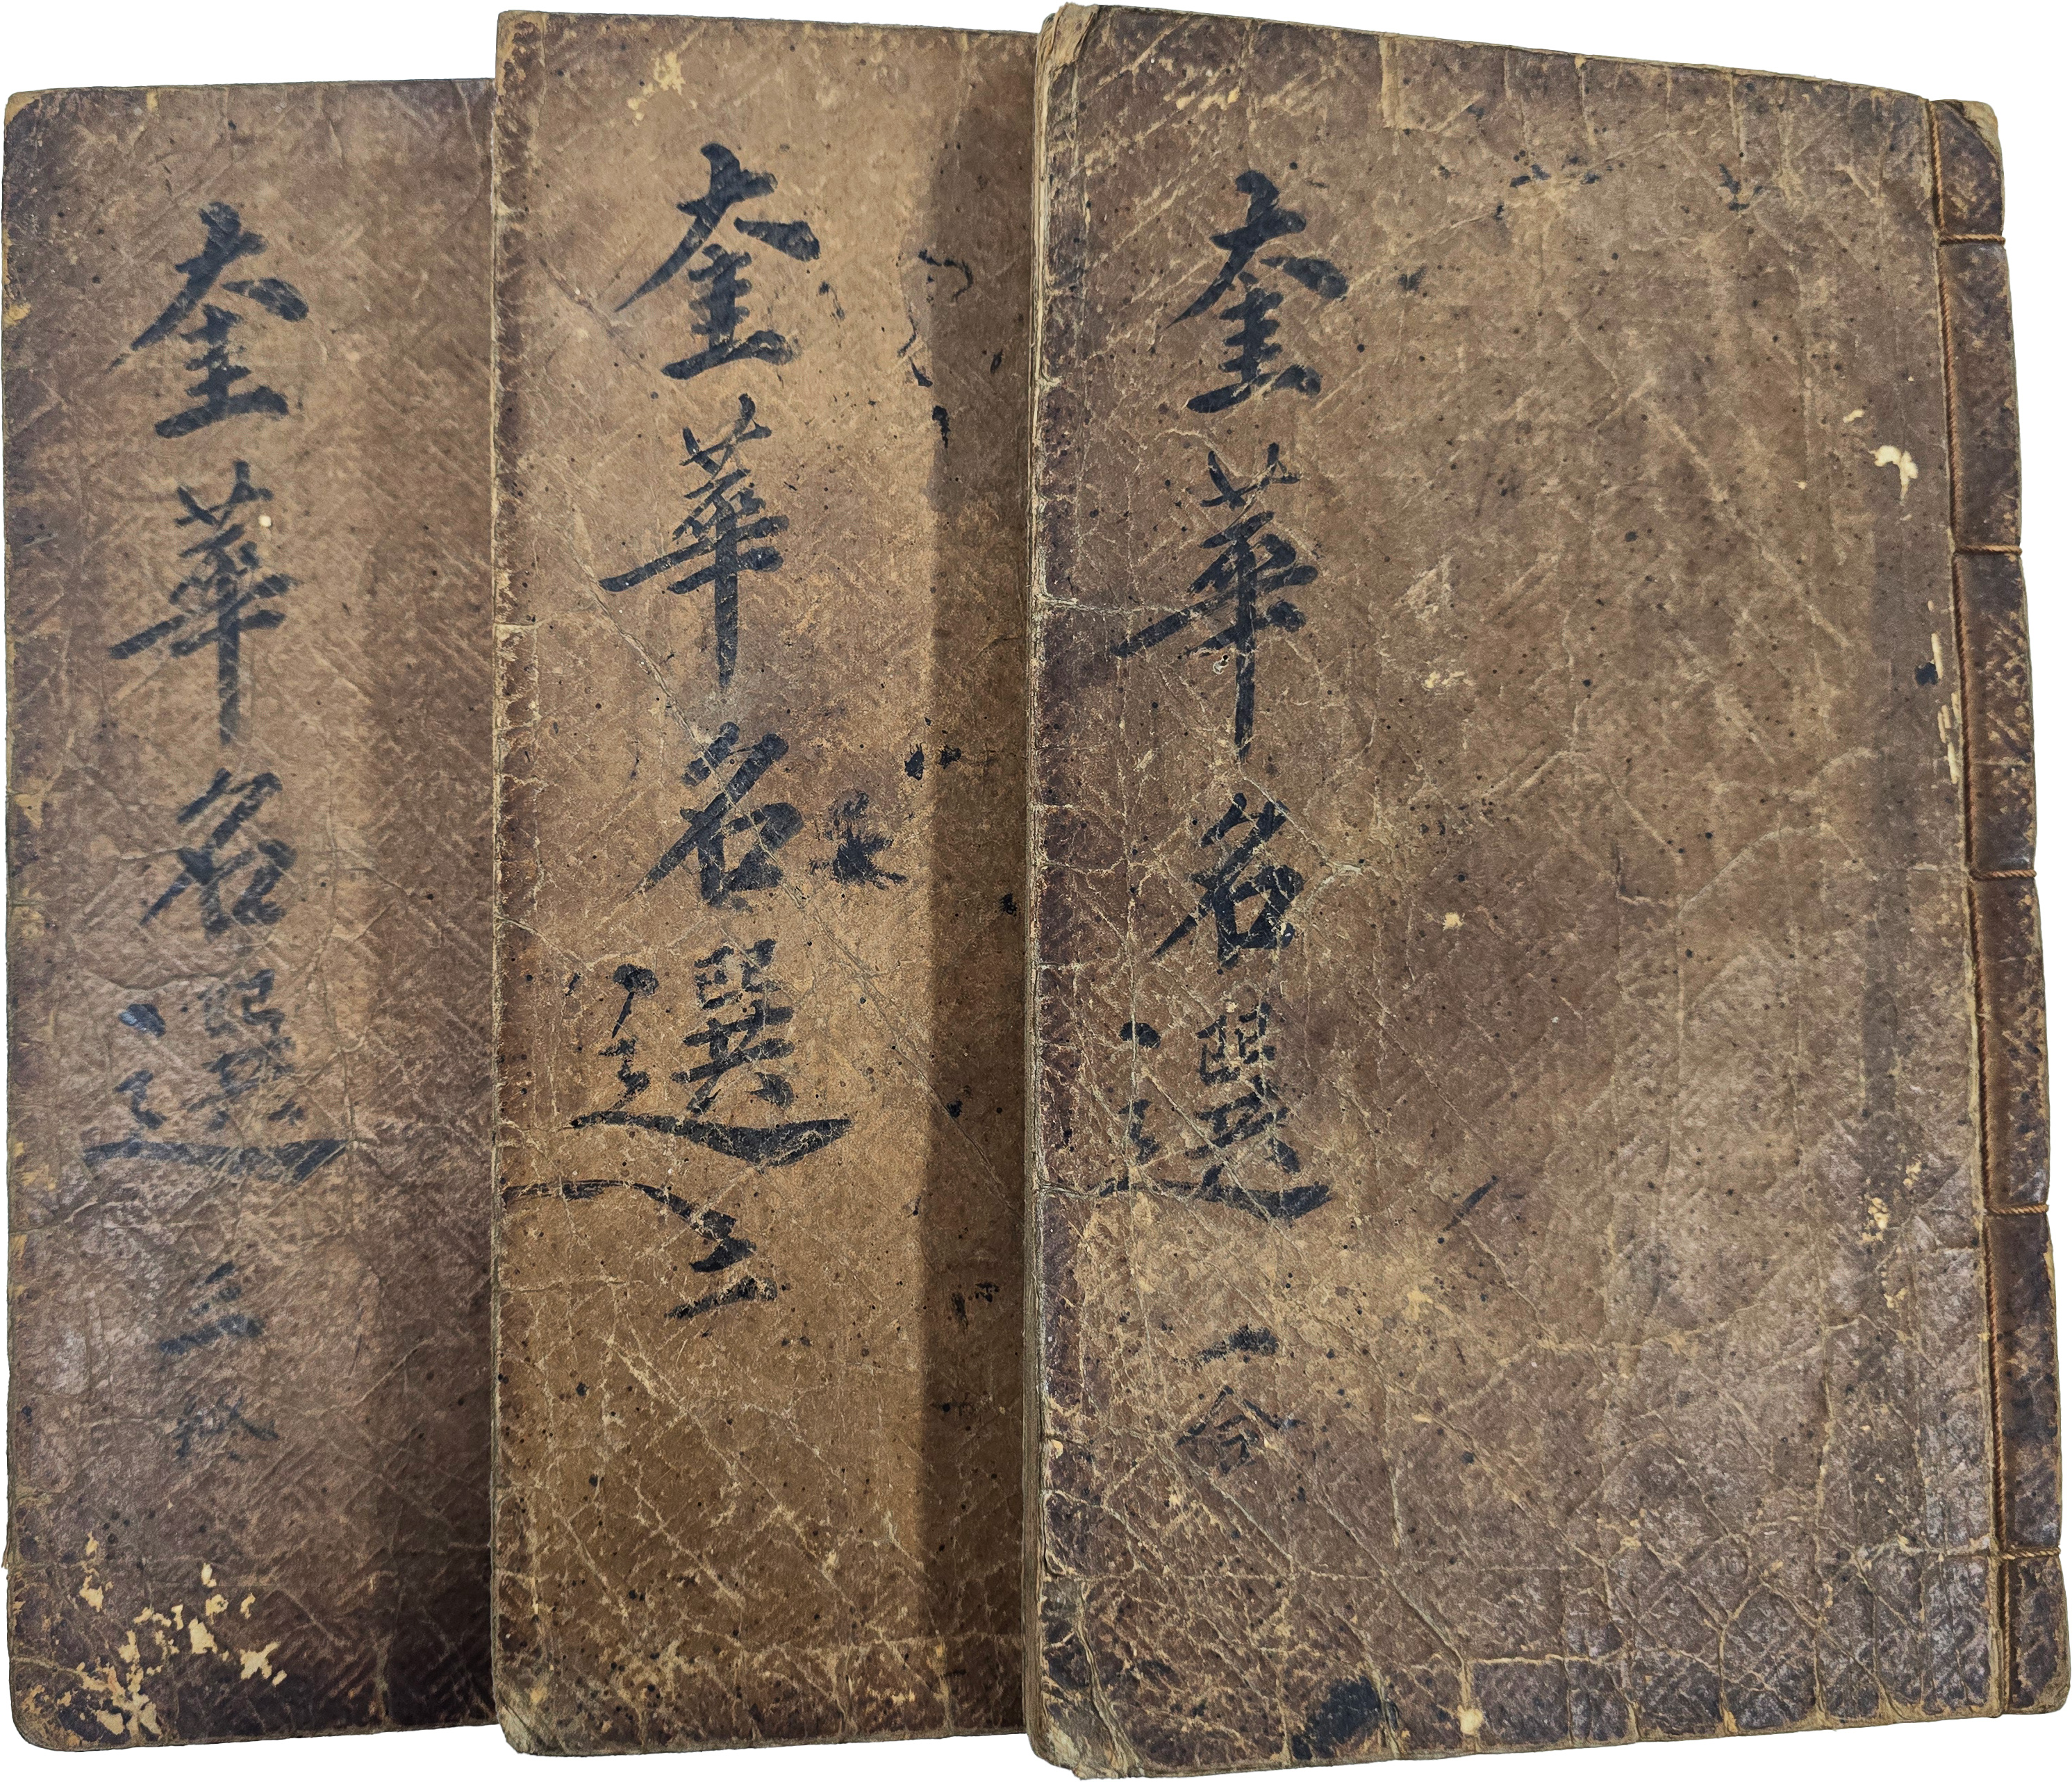 奎華名選 一
奎華名選 二
奎華名選 三 終